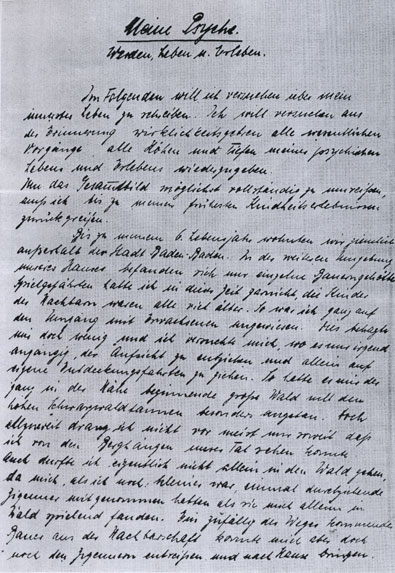 Meine Psyche.
Werden, Leben u. Erleben.
Im Folgenden will ich versuchen über mein
inneres Leben zu schreiben. Ich will versuchen aus
der Erinnerung wirklichkeitsgetreu alle wesentlichen
Vorgänge alle Höhen und Tiefen meines psychischen
Lebens und Erlebens wiederzugeben.
Um das Gesamtbild möglichst vollständig zu umreißen,
muß ich bis zu meinen frühesten Kindheitserlebnissen
zurückgreifen.
Bis zu meinem 6. Lebensjahr wohnten wir ziemlich
außerhalb der Stadt Baden-Baden. In der weiteren Umgebung
unseres Hauses befanden sich nur einzelne Bauerngehöfte
Spielgefährten hatte ich in dieser Zeit garnicht, die Kinder
der Nachbarn waren alle viel älter. So war ich ganz auf
den Umgang mit Erwachsenen angewiesen. Dies behagte
mir doch wenig und ich versuchte mich, wo es nur irgend
angängig, der Aufsicht zu entziehen und allein auf
eigene Entdeckungsfahrten zu ziehen. So hatte es mir der
ganz in der Nähe beginnende große Wald mit den
hohen Schwarzwaldtannen besonders angetan. Doch
allzuweit drang ich nicht vor meist nur soweit daß
ich von den Berghängen unser Tal sehen konnte
Auch durfte ich eigentlich nicht allein in den Wald gehen,
da mich, als ich noch kleiner war, einmal durchziehende
Zigeuner mitgenommen hatten als sie mich allein im
Wald spielend fanden. Ein zufällig des Weges kommender
Bauer aus der Nachbarschaft konnte mich aber doch
noch den Zigeunern entreißen und nach Hause bringen.